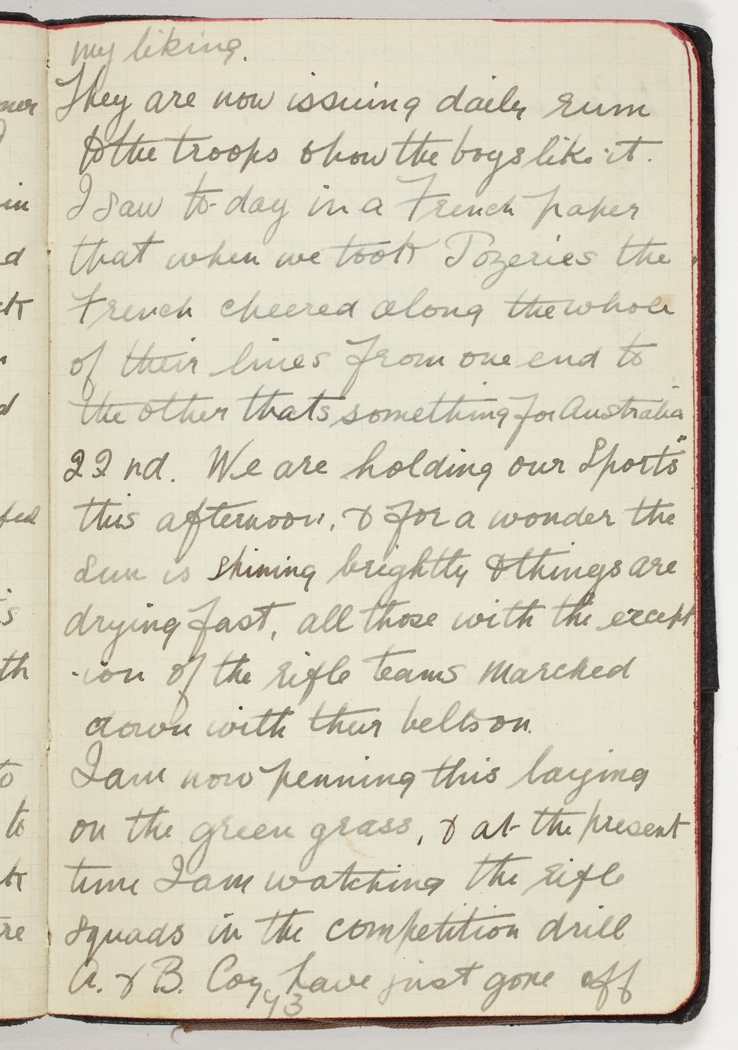 my liking.
They are now issuing daily rum
to the troops & how the boys like it.
I saw to-day in a French paper
that when we took Pozeries the
French cheered along the whole
of their lines from one end to
the other thats something for Australia
22nd. We are holding our Sports"
this afternoon, & for a wonder the
sun is shining brightly & things are
drying fast, all those with the except
-ion of the rifle teams marched
down with their belts on.
I am now penning this laying
on the green grass, & at the present
time I am watching the rifle
squads in the competition drill
A. & B. Coy have just gone off
43